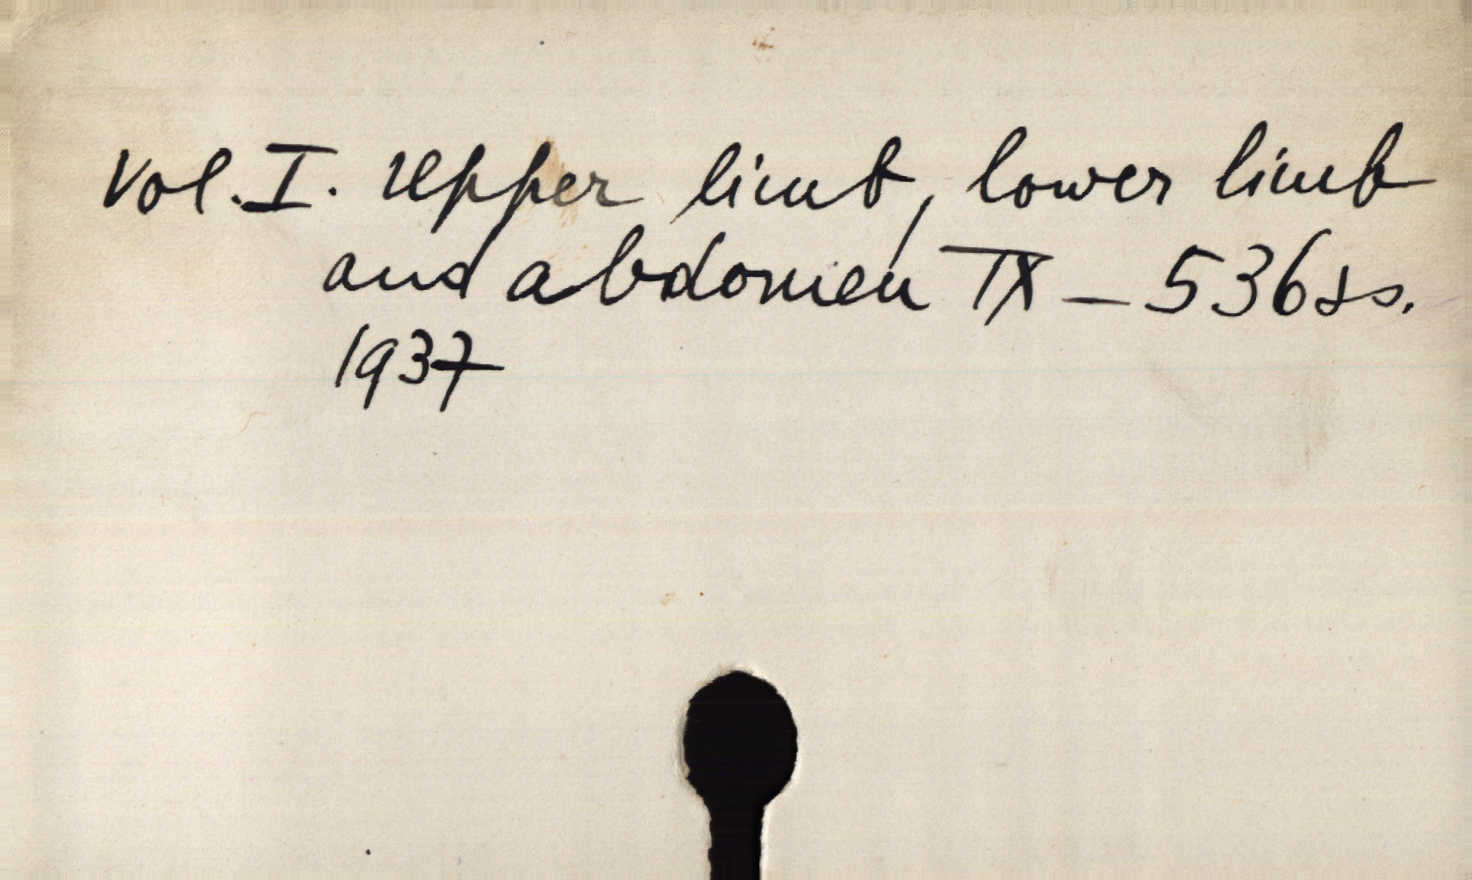 Vol. I. Upper limb, lower limb
and abdomen IX – 536 ss.
1937